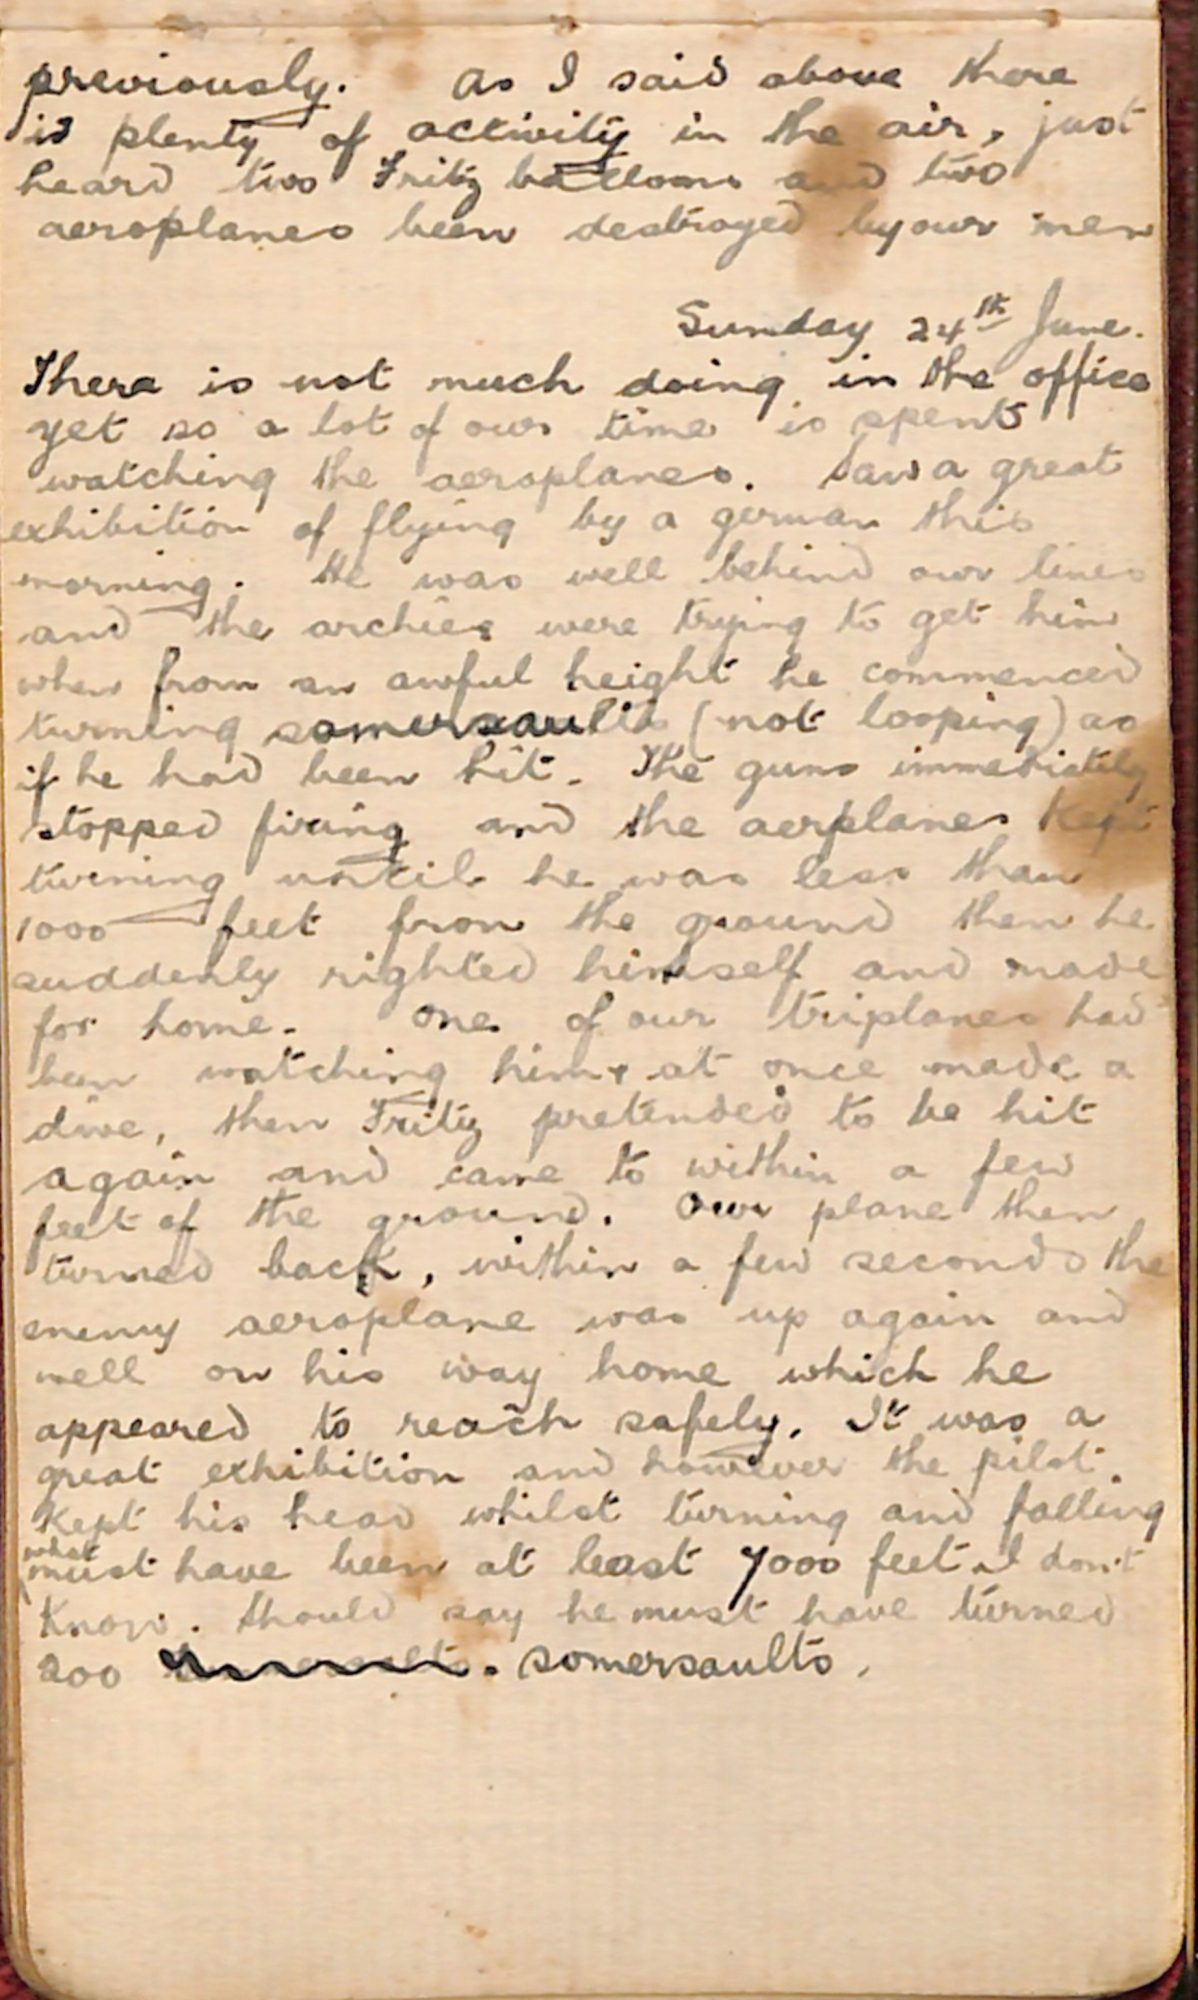 previously. As I said above there
is plenty of activity in the air, just
heard two Fritz balloons and two
aeroplanes been destroyed by our men
Sunday 24th June.
There is not much doing in the office
yet so a lot of our time is spent
watching the aeroplanes. Saw a great
exhibition of flying by a german this
morning. He was well behind our lines
and the archies were trying to get him
when from an awful height he commenced
turning somersaults (not looping) as
if he had been hit. The guns immediately
stopped firing and the aerplanes kept
turning until he was less than
1000 feet from the ground then he
suddenly righted himself and made
for home. One of our triplanes had
been watching him & at once made a
dive, then Fritz pretended to be hit
again and came to within a few
feet of the ground. Our plane then
turned back, within a few seconds the
enemy aeroplane was up again and
well on his way home which he
appeared to reach safely. It was a
great exhibition and however the pilot
kept his head whilst turning and falling
what
must have been at least 7000 feet I don't
know. Should say he must have turned
200 somersaults. somersaults.